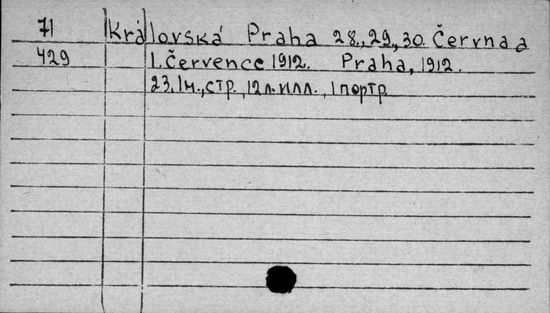 71 Královská Praha 28., 29., 30. Června a
429 1. Července 1912. Praha, 1912.
23. 1м., стр., 12л. илл., 1 портр.